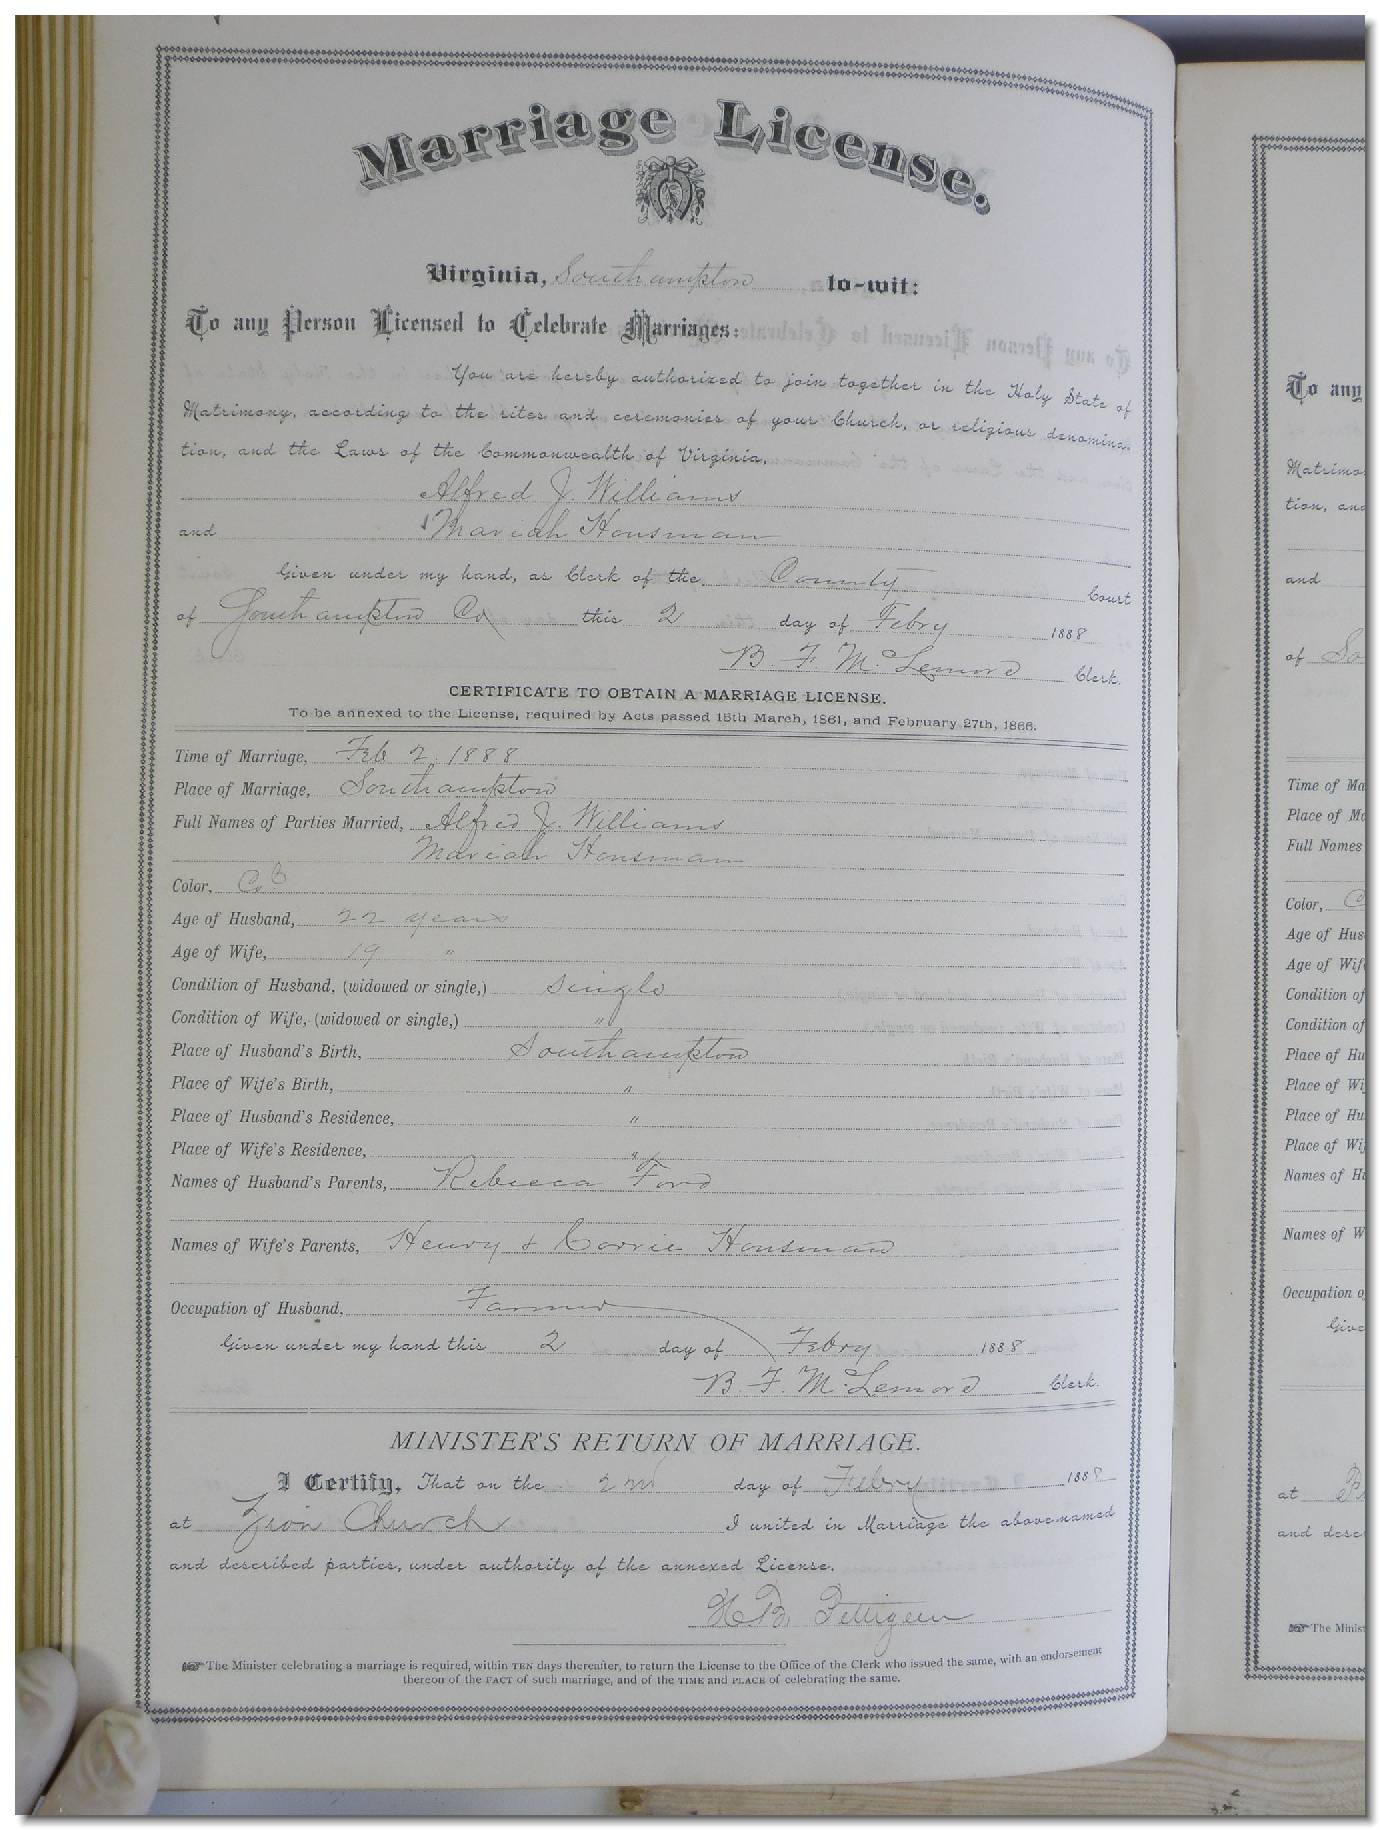 Marriage License.
Virginia, Southampton to-wit:
To any Person Licensed to Celebrate Marriages:
You are hereby authorized to join together in the Holy State of
Matrimony, according to the rites and ceremonies of your Church, or religious denomina-
tion, and the Laws of the Commonwealth of Virginia.
Alfred J. Williams
and Mariah Housman
Given under my hand, as Clerk of the County Court
of Southampton Co this 2 day of Febry 1888
B. F. McLemore Clerk.
CERTIFICATE TO OBTAIN A MARRIAGE LICENSE.
To be annexed to the License, required by Acts passed 15th March, 1861, and February 27th, 1866.
Time of Marriage, Feb 2 1888
Place of Marriage, Southampton
Full Names of Parties Married, Alfred J. Williams
Mariah Housman
Color,
Age of Husband, 22 years
Age of Wife, 19 "
Condition of Husband, (widowed or single,) single
Condition of Wife, (widowed or single,) "
Place of Husband's Birth, Southampton
Place of Wife's Birth, "
Place of Husband's Residence, "
Place of Wife's Residence, "
Names of Husband's Parents, Rebecca Ford
Names of Wife's Parents, Henry & Corrie Housman
Occupation of Husband, Farmer
Given under my hand this 2 day of Febry 1888
B. F. McLemore Clerk.
MINISTER'S RETURN OF MARRIAGE.
I Certify, That on the 2nd day of Febry 1888
at Zion Church I united in Marriage the above-named
and described parties, under authority of the annexed License.
The Minister celebrating a marriage is required, within TEN days thereafter, to return the License to the Office of the Clerk who issued the same, with an endorsement
thereon of the FACT of such marriage, and of the TIME and PLACE of celebrating the same.
To any
Matrimo
tion, and
and
of So
Time of Ma
Place of Ma
Full Names
Color, C
Age of Hus
Age of Wif
Condition of
Condition of
Place of Hu
Place of Wi
Place of Hu
Place of Wi
Names of H
Names of W
Occupation o
Give
at
and desc
The Minist